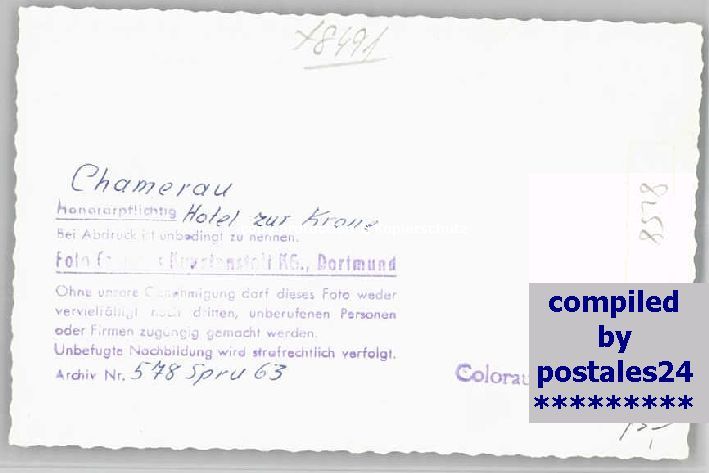 x8491
Chamerau
honorarpflichtig Hotel zur Krone
Bei Abdruck ist unbedingt zu nennen.
Foto Kunstanstalt KG., Dortmund
Ohne unsere Genehmigung darf dieses Foto weder
vervielfältigt noch dritten, unberufenen Personen
oder Firmen zugängig gemacht werden.
Unbefugte Nachbildung wird strafrechtlich verfolgt.
Archiv Nr. 578 Spru 63
8258
compiled
by
postales24
*********